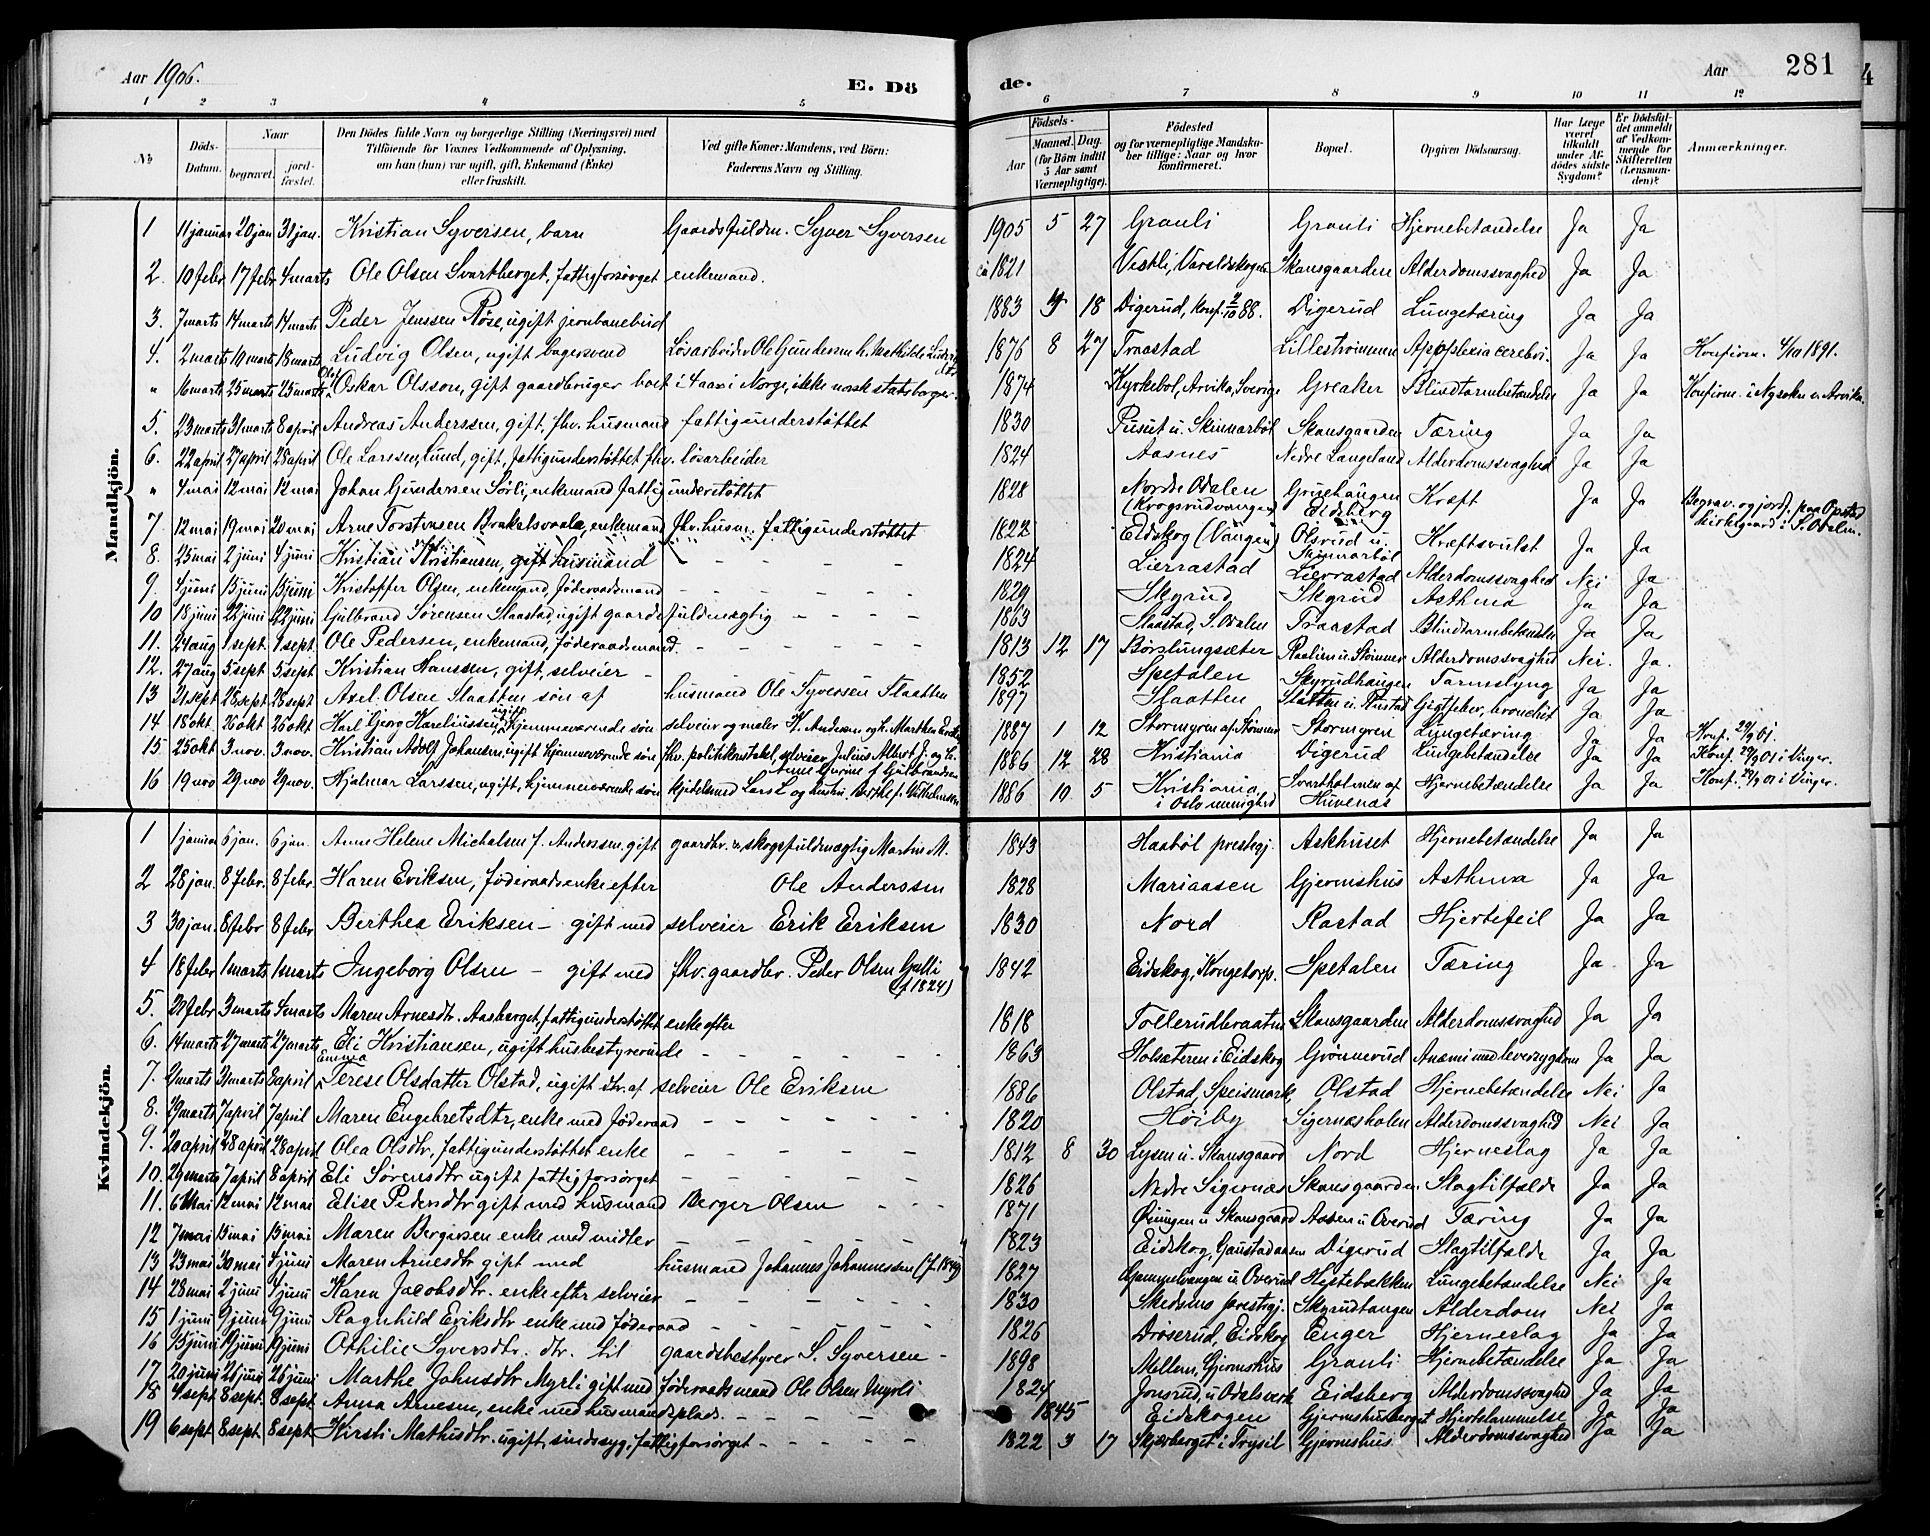 Aar 1906. E. Döde. Aar 281
1 2 3 4 5 6 7 8 9 10 11 12
No Döds-Datum. Naar begravet. jordfæstet. Den Dödes fulde Navn og borgerlige Stilling (Næringsvei) med Tilföiende for Voxnes Vedkommende af Oplysning, om han (hun) var ugift, gift, Enkemand (Enke) eller fraskilt. Ved gifte Koner: Mandens, ved Börn: Faderens Navn og Stilling. Födsels- Aar Maaned. Dag. (for Börn indtil 5 Aar samt Værnepligtige). Födested og for værnepligtige Mandskaber tillige: Naar og hvor konfirmeret. Bopæl. Opgiven Dödsaarsag. Har Læge været tilkaldt under Afdödes sidste Sygdom? Er Dödsfaldet anmeldt af Vedkommende for Skifteretten (Lensmanden)? Anmerkninger.
Mandkjön.
1 11 januar 20 jan 31 jan. Kristian Syversen, barn Gaardsfuldm. Syver Syversen 1905 5 27 Granli Granli Hjernebetændelse Ja Ja
2. 10 febr 17 febr 4 marts Ole Olsen Svartberget, fattigforsørget enkemand. ca 1821 Vestli, Varaldskogen Skansgaarden Alderdomssvaghed Ja Ja
3. 7 marts 14 marts 14 marts Peder Jenssen Røse, ugift jernbanebud 1883 4 18 Digerud, Konf. 2/10 88. Digerud Lungetæring Ja Ja
4. 2 marts 10 marts 18 marts Ludvig Olsen, ugift bagersvend Løsarbeider Ole Gundersen h. Mathilde Ludvigsdtr 1876 8 27 Traastad Lillestrømmen Apoplexia cerebri. Ja Ja Konfirm. 4/10 1891.
" 16 marts 25 marts 25 marts Olof Oskar Olsson, gift gaardbruger boet i 4 aar i Norge, ikke norsk statsborger. 1874 Kyrkebol, Arvika, Sverige Greaker Blindtarmbetændelse Ja Ja Konfirm. i Nysokn v. Arvika.
5. 23 marts 31 marts 8 april Andreas Anderssen, gift, fhv. husmand fattigunderstøttet 1830 Puset u. Skinnarbøl Skansgaarden Tæring Ja Ja
6. 22 april 27 april 28 april Ole Larssen Lund, gift, fattigunderstøttet fhv. løsarbeider 1824 Aasnes Nedre Langeland Alderdomssvaghed Ja Ja
" 4 mai 12 mai 12 mai Johan Gundersen Sørli, enkemand fattigunderstøttet 1828 Nordre Odalen (Krogsrudvangen) Gruehaugen Eidsberg Kræft Ja Ja Begrav. og jordf. paa Opstad kirkegaard i S. Odalen.
7. 12 mai 19 mai 20 mai Arne Torstensen Brakalsvaala, enkemand fhv. husm. fattigunderstøttet 1822 Eidskog (Vangen) Olsrud u. Skinnarbøl Kræftsvulst Ja Ja
8. 25 mai 2 juni 4 juni Kristian Kristiansen, gift husmand – – – – 1824 Lierrastad Lierrastad Alderdomssvaghed Nei Ja
9. 4 juni 15 juni 15 juni Kristoffer Olsen, enkemand, føderaadsmand – – – – 1829 Skyrud Skyrud Asthma Ja Ja
10 18 juni 22 juni 22 juni Gulbrand Sørensen Slaastad, ugift gaardsfuldmægtig – – – 1863 Slaastad, S. Odalen Traastad Blindtarmbetændelse Ja Ja
11. 24 aug 1 sept. 1 sept. Ole Pedersen, enkemand, føderaadsmand. – – – – 1813 12 17 Børslungsæter Raalien u. Stømner Alderdomssvaghed Nei. Ja.
12. 27 aug 5 sept 5 sept Kristian Hanssen, gift, selveier – – – – 1852 Spetalen Skyrudhaugen Tarmslyng Ja Ja
13 21 sept 28 sept 28 sept Axel Olsen Slaatten søn af husmand Ole Syversen Slaatten 1897 Slaatten Slatten u. Rustad Gigtfeber, bronchit Ja Ja
14 18 okt. 26 okt 26 okt Karl Georg Kareliussen, ugift hjemmeværende søn selveier og maler K. Andersen og h. Marthea 1887 1 12 Stormyren af Stømner Stormyren Lungetæring Ja Ja Konf. 29/9 01.
15 25 okt 3. nov. 3. nov. Kristian Adolf Johansen, ugift hjemmeværende søn fhv. politikonstabel, selveier Julius Albert J. og h. Anne Gurine f. Gulbrandsen 1886 12 28 Kristiania Digerud Lungebetændelse Ja Ja Konf. 29/9 01 i Vinger.
16 19 nov 29 nov 29 nov. Hjalmar Larssen, ugift, hjemmeværende søn kjedelsmed Lars L. og hustru Berthe f. Vilhelmsen 1886 10 5 Kristiania, i Oslo menighed Svartholmen af Huvenæs Hjernebetændelse Ja Ja Konf. 29/9 01 i Vinger.
Kvindekjön.
1 1 januar 6 jan. 6 jan. Anne Helene Michalsen f. Anderssen, gift gaardbr. & skogsfuldmægtig Martin M. 1843 Haabøl prestegj. Askhuset Hjernebetændelse Ja Ja
2 28 jan. 8 febr. 8 febr. Karen Eriksen, føderaadsenke efter Ole Anderssen 1828 Mariaasen Gjermshus Asthma Ja Ja
3 30 jan. 8 febr 8 febr Berthea Eriksen – gift med selveier Erik Eriksen 1830 Nord Rastad Hjertefeil Ja Ja
4 18 febr 1 marts 1 marts Ingeborg Olsen – gift med fhv. gaardbr. Peder Olsen Galli (f. 1824) 1842 Eidskog, Kongetorp. Spetalen Tæring Ja. Ja
5. 21 febr 3 marts 4 marts Maren Arnesdtr. Aasberget, fattigunderstøttet enke efter 1818 Tollerudbraaten Skansgaarden Alderdomssvaghed Ja Ja
6. 14 marts 27 marts 27 marts Eli Kristiansen, ugift husbestyrerinde – – – – 1863 Holsæteren i Eidskog Grønnerud Anæmi med leversygdom Ja Ja
7. 21 marts 31 marts 8 april Emma Terese Olsdatter Olstad, ugift dtr. af selveier Ole Eriksen 1886 Olstad, Speismark. Olstad Hjernebetændelse Nei Ja
8. 29 marts 7 april 7 april Maren Engebretsdtr, enke med føderaad – – – – 1820 Høiby Sigernæsholen Alderdomssvaghed Nei Ja
9. 20 april 28 april 28 april Olea Olsdtr, fattigunderstøttet enke – – – – 1812 8 30 Lysen u. Skansgaard Nord Hjerneslag Ja Ja
10. 29 marts 7 april 8 april Eli Sørensdtr ugift fattigforsørget – – – – 1826 Nedre Sigernæs Skansgaarden Slagtilfælde Ja Ja
11. 6 mai 12 mai 12 mai Elise Pedersdtr gift med husmand Berger Olsen – – – 1871 Øiungen u Skansgaard Aasen u Overud Tæring Ja Ja
12 7 mai 15 mai 15 mai Maren Bergersen enke med midler – – – – 1823 Eidskog, Gaustadaasen Digerud Slagtilfælde Ja Ja
13 23 mai 30 mai 4 juni Maren Arnesdtr gift med husmand Johannes Johannessen (f. 1849) 1827 Gammelvangen u Overud Hestebækken Lungebetændelse Nei Ja
14 28 mai 2 juni 4 juni Karen Jacobsdtr. enke efter selveier – – – – 1830 Skedsmo prestegj. Skyrudtangen Alderdom Nei Ja
15 1 juni 9 juni 9 juni Ragnhild Eriksdtr enke med føderaad – – – – 1826 Drøserud, Eidskog Enger Hjerneslag Ja Ja
16 15 juni 19 juni 19 juni Othilie Syversdtr. dtr. til gaardsbestyrer S. Syversen – 1898 Mellem, Gjermshus Granli Hjernebetændelse Ja Ja
17 20 juni 26 juni 26 juni Marthe Johnsdtr Myrli gift med føderaadsmand Ole Olsen Myrli 1824 Jonsrud, u Odalsverk Eidsberg Alderdomssvaghed Ja Ja
18 4 sept 8 sept. 8 sept Anna Arnesen, enke med husmandsplads. – – – – 1845 Eidskogen Gjermshusberget Hjertelammelse Ja Ja
19 6 sept 8 sept. 8 sept. Kirsti Mathisdtr. ugift, sindssyg, fattigforsørget – – – – 1822 3 17 Skjærberget i Trysil Gjermshus Alderdomssvaghed Ja Ja